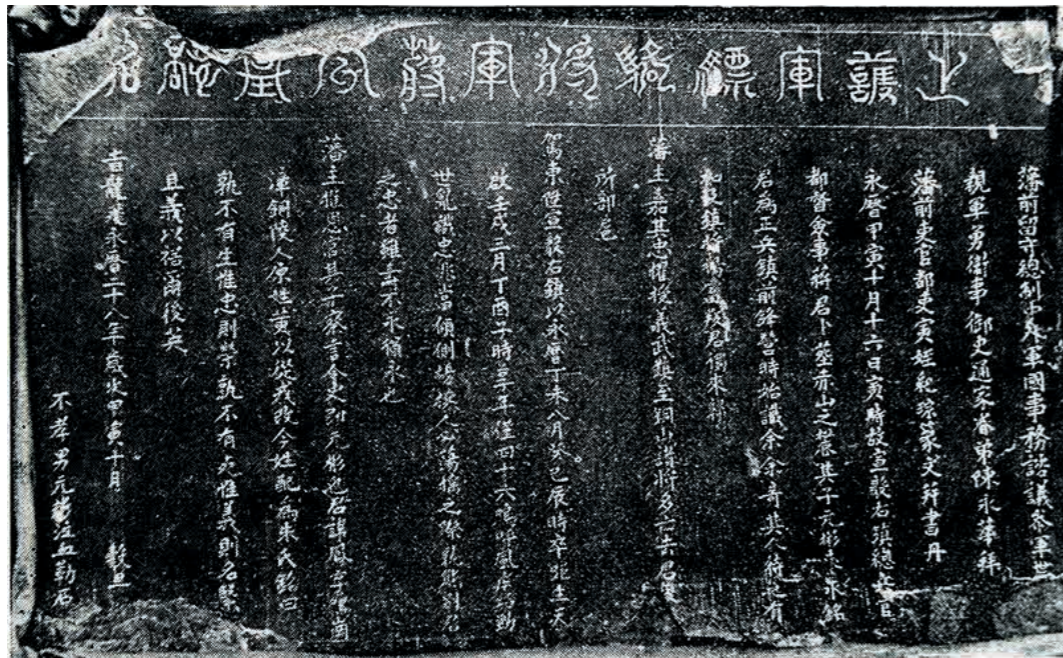 上護軍驃騎將軍蔡公墓誌銘
藩前留守總制中外軍國事務諮議參軍世
親軍勇衛事御史通家眷弟陳永華拜
藩前吏官都吏寅姪紀孫篆文拜書丹
永曆甲寅十月十六日寅時故宣毅右鎮總兵官
都督僉事蔡君卜葬亦山之麓其子元彬來求銘
君為正兵鎮前鋒營時始識余余奇其人待之有
加 鎮 君獨來歸
藩主嘉其忠擢授義武鎮至銅山諸將多 去君
所部邑
駕東從宣毅右鎮以永曆丁未八月癸巳辰時卒距生天
啟壬戌三月丁酉子時享年僅四十六嗚呼
世亂識忠非當傾側擾攘人心蕩搖之際孰能別君
之忠者雖云不永猶永也
藩主推恩官其子蔡吉今吏 元彬也君諱鳳字鳴崗
漳銅陵人原姓黃以從戎改今姓配 朱氏銘曰
孰不有生惟忠則芳孰不有死惟義則名繄
且義以祐爾後英
吉龍飛永曆二十八年歲次甲寅十月 穀旦
不孝男元彬泣血勒石